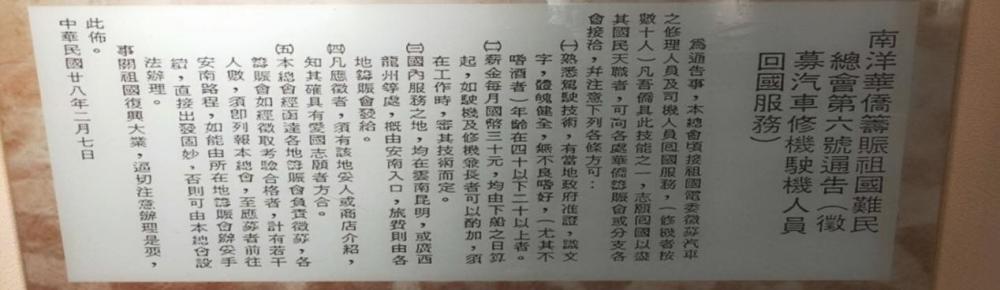 南洋華僑籌賑祖國難民
總會第六號通告（徵
募汽車修機駛機人員
回國服務）
為通告事，本總會頃接祖國電委徵募汽車
之修理人員及司機人員回國服務，（修機者按
數十人）凡吾僑具此技能之一，志願回國以盡
其國民天職者，可向各處華僑籌賑會或分支各
會接洽，幷注意下列各條方可：
㈠熟悉駕駛技術，有當地政府准證，識文
字，體魄健全，無不良嗜好，（尤其不
嗜酒者）年齡在四十以下二十以上者。
㈡薪金每月國幣三十元，均由下船之日算
起，如駛機及修機兼長者可以酌加，須
在工作時，審其技術而定。
㈢國內服務之地，均在雲南昆明，或廣西
龍州等處，概由安南入口，旅費則由各
地籌賑會發給。
㈣凡應徵者，須有該地妥人或商店介紹，
知其確具有愛國志願者方合。
㈤本總會經函達各地籌賑會負責徵募，各
籌賑會如經徵取考驗合格者，計有若干
人數，須卽列報本總會，至應募者前往
安南路程，如能由所在地籌賑會辦妥手
續，直接出發固妙，否則可由本總會設
法辦理。
事關祖國復興大業，迫切注意辦理是要，
此佈。
中華民國廿八年二月七日